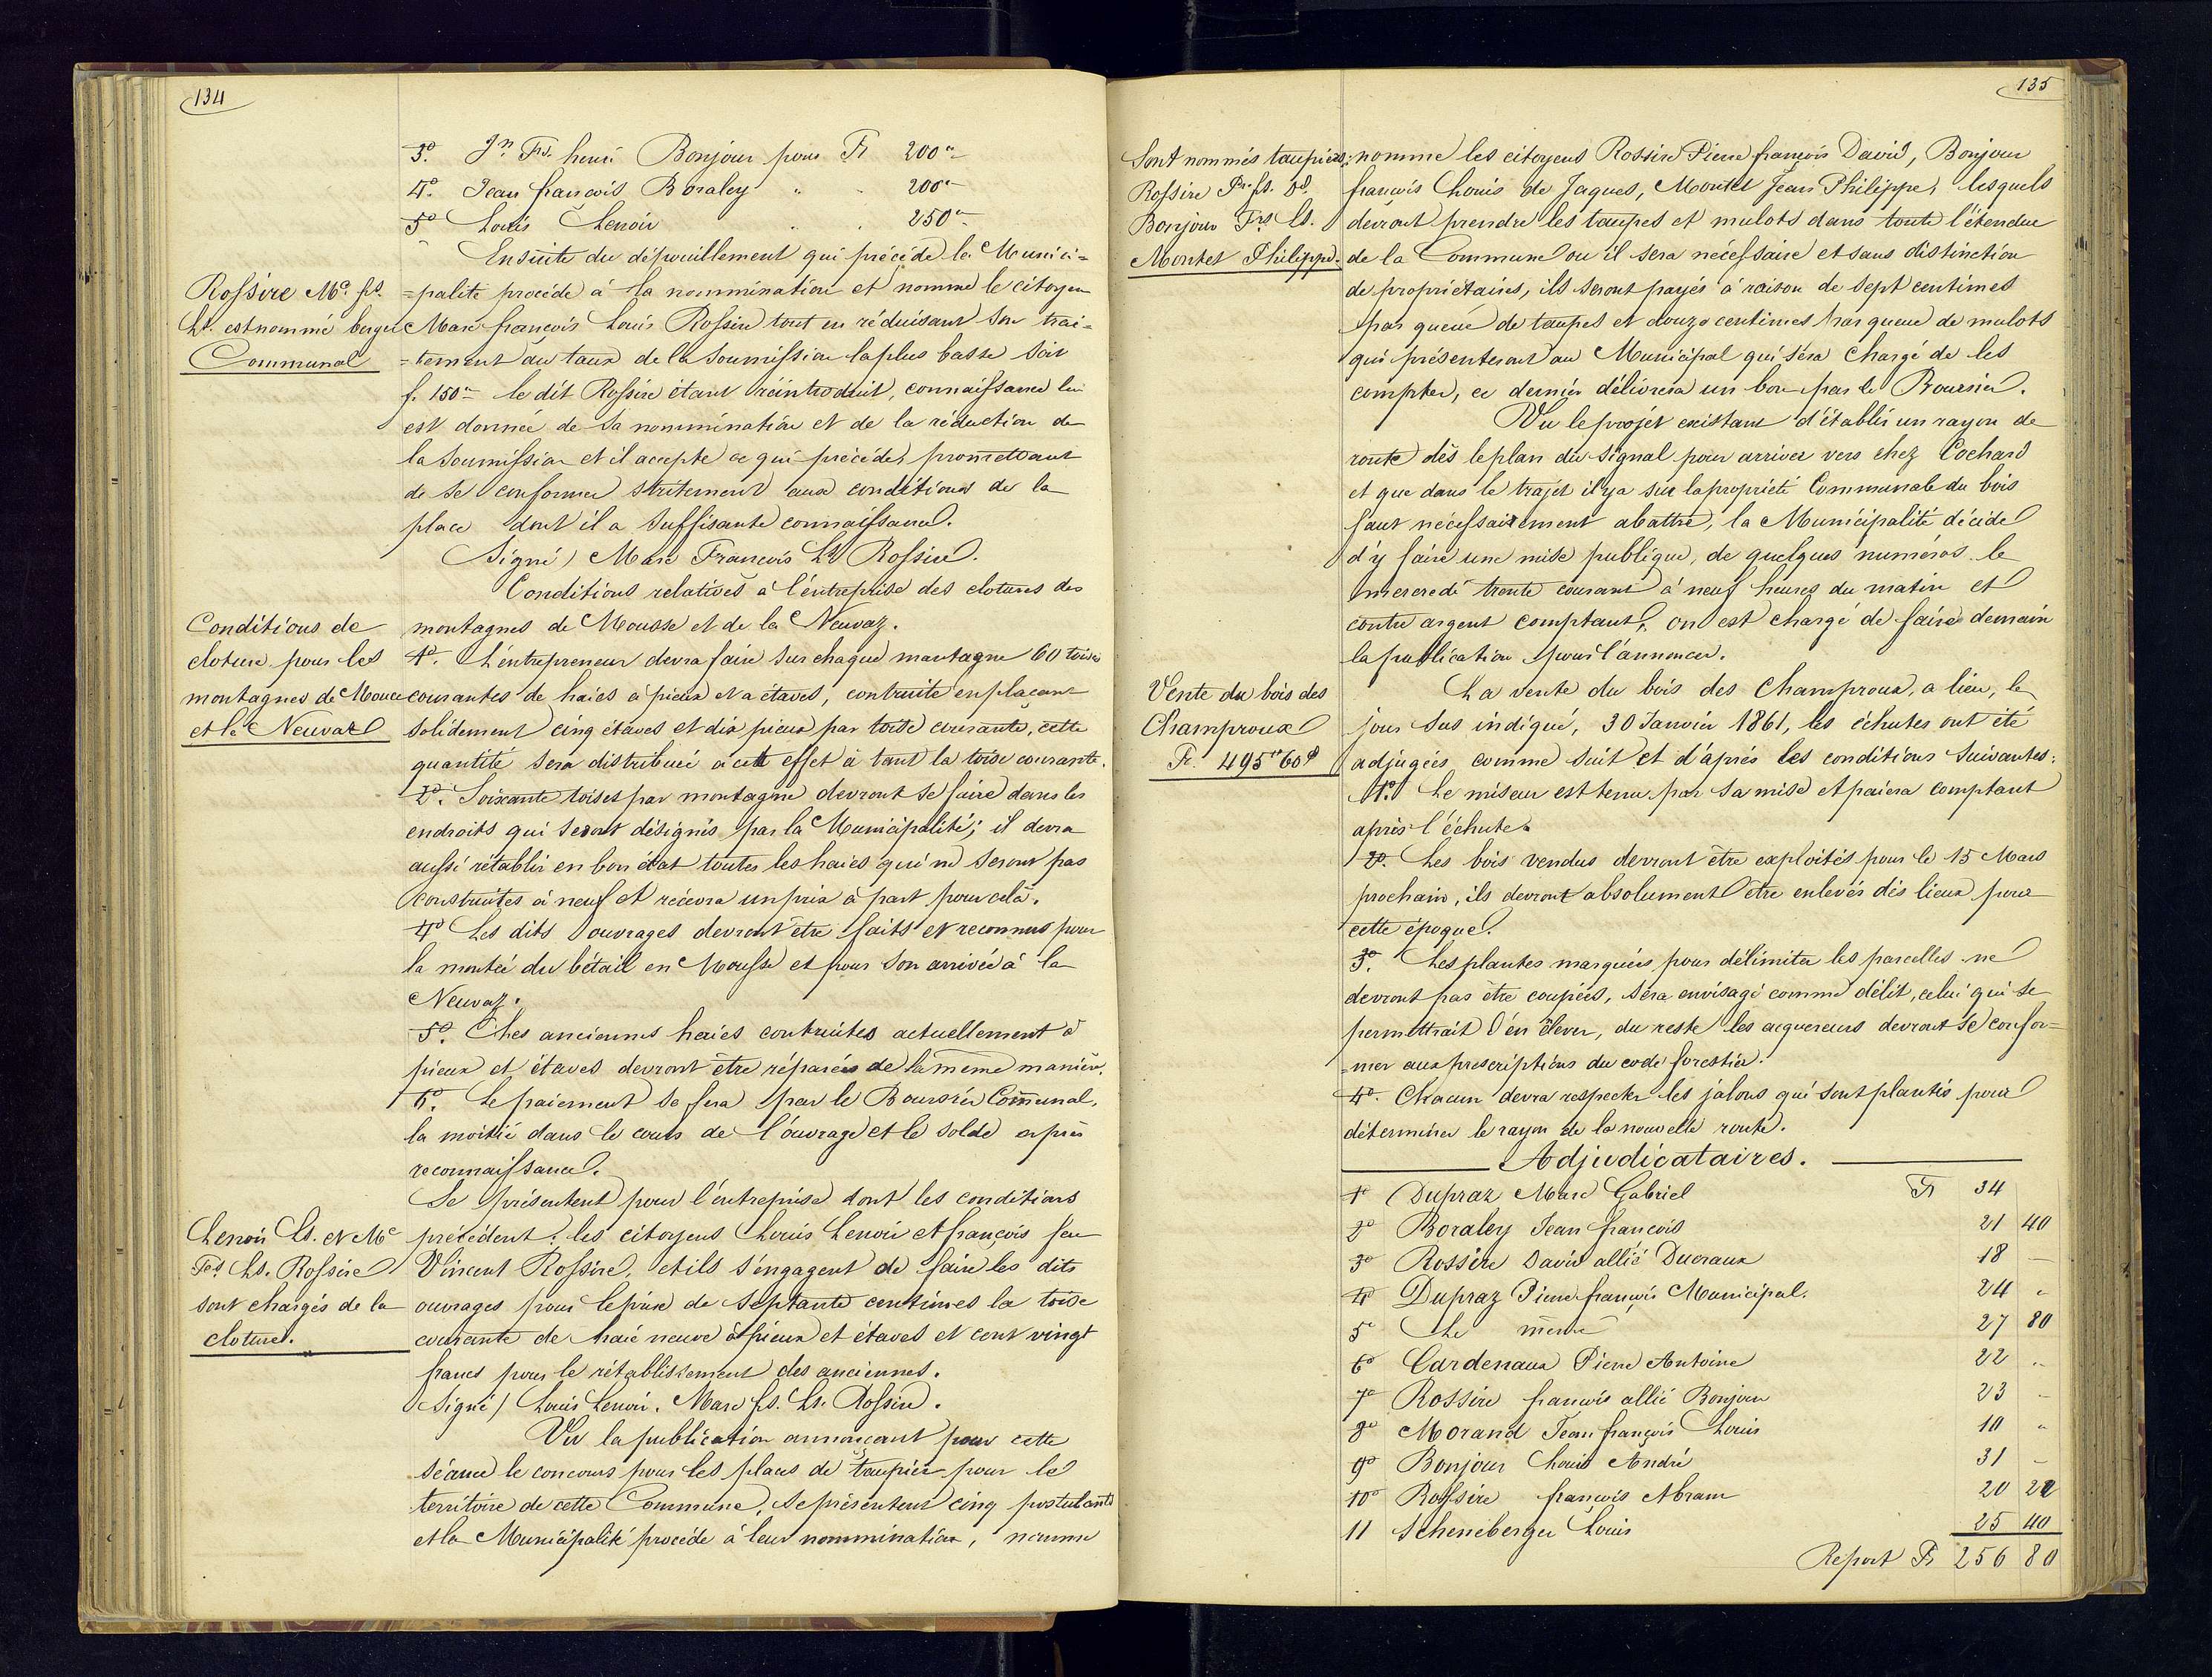 134
3º. Jn. Frs. henri Bonjour pour Fr 200"
4º. Jean françois Boraley " " 200"
5º Louis Lenoir " " 250"
Ensuite du dépouillement qui précède la Munici=
Rossire Mc. fs.
Ls. est nommé berger
Communal
=palité procède à la nommination et nomme le citoyen
Marc françois Louis Rossire tout en réduisant son trai=
=tement au taux de la soumission la plus basse soit
f. 150" le dit Rossire étant réintroduit, connaissance lui
est donnée de sa nommination et de la réduction de
la soumission et il accepte ce qui précède, promettant
de se conformer stritement aux conditions de la
place dont il a suffisante connaissance.
Signé) Marc François Ls Rossire.
Conditions relatives à l'entreprise des clotures des
Conditions de
cloture pour les
montagnes de Mouce
et la Neuvaz
montagnes de Mousse et de la Neuvaz.
1º. L'entrepreneur devra faire sur chaque montagne 60 toises
courantes de haies à pieux et à étaves, contruite en plaçant
solidement cinq étaves et dix pieux par toise courante, cette
quantité sera distribuée à cett effet à tant la toise courante.
2º. Soixante toises par montagne devront se faire dans les
endroits qui seront désignés par la Municipalité; il devra
aussi rétablir en bon état toutes les haies qui ne seront pas
construites à neuf et recevra un prix à part pour celà.
4º Les dits ouvrages devront être faits et reconnus pour
la montée du bétail en Mousse et pour son arrivée à la
Neuvaz.
5º. Les anciennes haies contruites actuellement à
pieux et étaves devront être réparées de la même manière.
6º. Le paiement se fera par le Boursier Communal,
la moitié dans le cours de l'ouvrage et le solde après
reconnaissance.
Se présentent pour l'entreprise dont les conditions
Lenoir Ls. et Mc
Fçs Ls. Rossire
sont chargés de la
cloture.
précèdent: les citoyens Louis Lenoir et françois feu
Vincent Rossire, et ils s'engagent de faire les dits
ouvrages pour le prix de septante centimes la toise
courante de haie neuve à pieux et étaves et cent vingt
francs pour le rétablissement des anciennes.
Signé) Louis Lenoir. Marc fs. Ls. Rossire.
Vu la publication annonçant pour cette
séance le concours pour les places de taupiers pour le
territoire de cette Commune, se présentent cinq postulants
et la Municipalité procède à leur nommination, nomme
135
Sont nommés taupiers:
Rossire Pre fs. Dd.
Bonjour Frs Ls.
Montet Philippe.
nomme les citoyens Rossire Pierre françois David, Bonjour
françois Louis de Jaques, Montet Jean Philippe, lesquels
devront prendre les taupes et mulots dans toute l'étendue
de la Commune ou il sera nécessaire et sans distinction
de propriétaires, ils seront payés à raison de sept centimes
par queue de taupes et douze centimes par queue de mulots
qui présenteront au Municipal qui sera chargé de les
compter, ce dernier délivrera un bon par le Boursier.
Vu le projet existant d'établir un rayon de
route dès le plan du Signal pour arriver vers chez Cochard
et que dans le trajet il y a sur la propriété Communale du bois
faut nécessairement abattre, la Municipalité décide
d'y faire une mise publique, de quelques numéros le
mercredi trente courant à neuf heures du matin et
contre argent comptant, on est chargé de faire demain
la publication pour l'annoncer.
Vente du bois des
Champroux
Fr. 495"60c
La vente du bois des Champroux, a lieu, le
jour sus indiqué, 30 Janvier 1861, les échutes ont été
adjugées comme suit et d'après les conditions suivantes:
1º. Le miseur est tenu par sa mise et paiera comptant
après l'échute.
2º. Les bois vendus devront être exploités pour le 15 Mars
prochain, ils devront absolument être enlevés dès lieux pour
cette époque.
3º. Les plantes marquées pour délimiter les parcelles ne
devront pas être coupées, sera envisagé comme délit, celui qui se
permettrait d'en élever, du reste les acquereurs devront se confor=
=mer aux prescriptions du code forestier.
4º. Chacun devra respecter les jalons qui sont plantés pour
déterminer le rayon de la nouvelle route.
Adjudicataires.
1º Dupraz Marc Gabriel Fr 34
2º Boraley Jean françois 21 40
3º Rossire David allié Ducraux 18 —
4º Dupraz Pierre françois Municipal. 24 "
5º Le même 27 80
6º Cardenaux Pierre Antoine 22 "
7º Rossire françois allié Bonjour 23 "
8º Morand Jean françois Louis 10 "
9º Bonjour Louis André 31 "
10º Rossire françois Abram 20 22
11 Scheneberger Louis 25 40
Report Fr 256 80